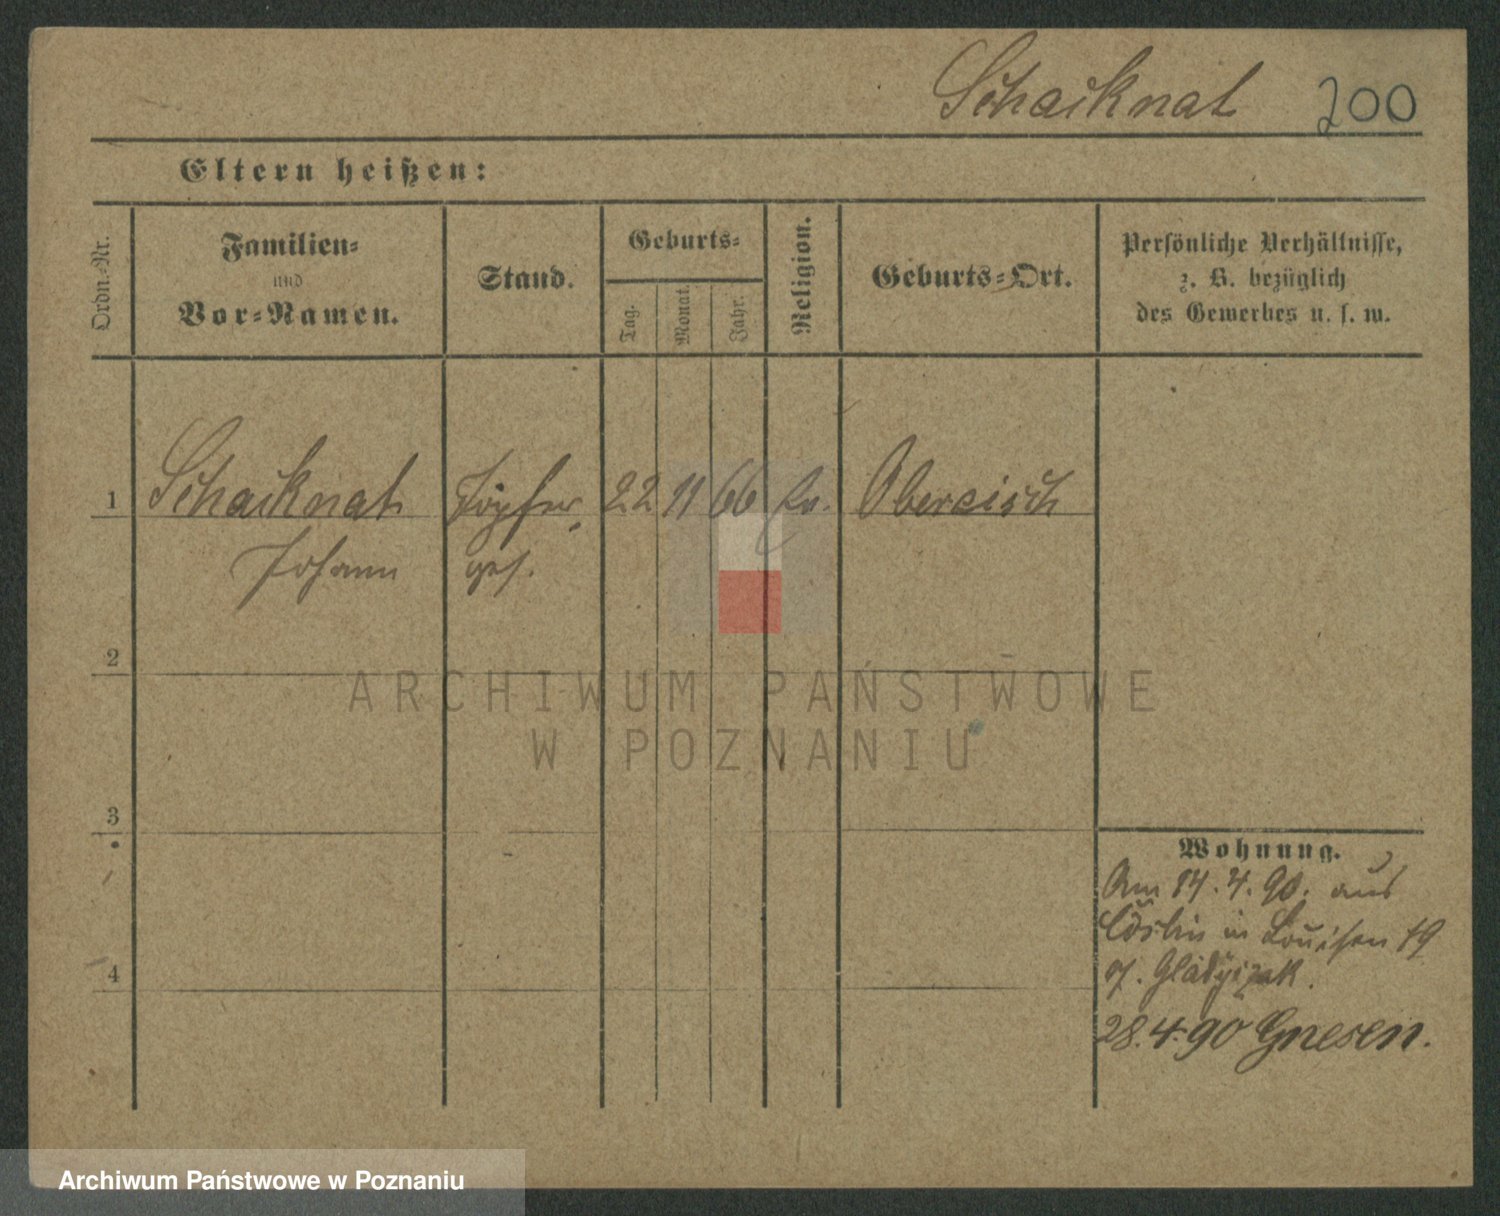 Schaiknat 200
Eltern heißen:
Ordn.-Nr.
Familien-
und
Vor-Namen.
Stand.
Geburts-
Tag.
Monat.
Jahr.
Religion.
Geburts-Ort.
Persönliche Verhältnisse,
z. B. bezüglich
des Gewerbes u. s. w.
1 Schaiknat Töpfer 22 11 66 Ev.
Johann ges.
2
3
4
ARCHIWUM PAŃSTWOWE
W POZNANIU
Wohnung.
Am 14.4.90. aus
Cöslin in Louisen 19
28.4.90 Gnesen.
Archiwum Państwowe w Poznaniu